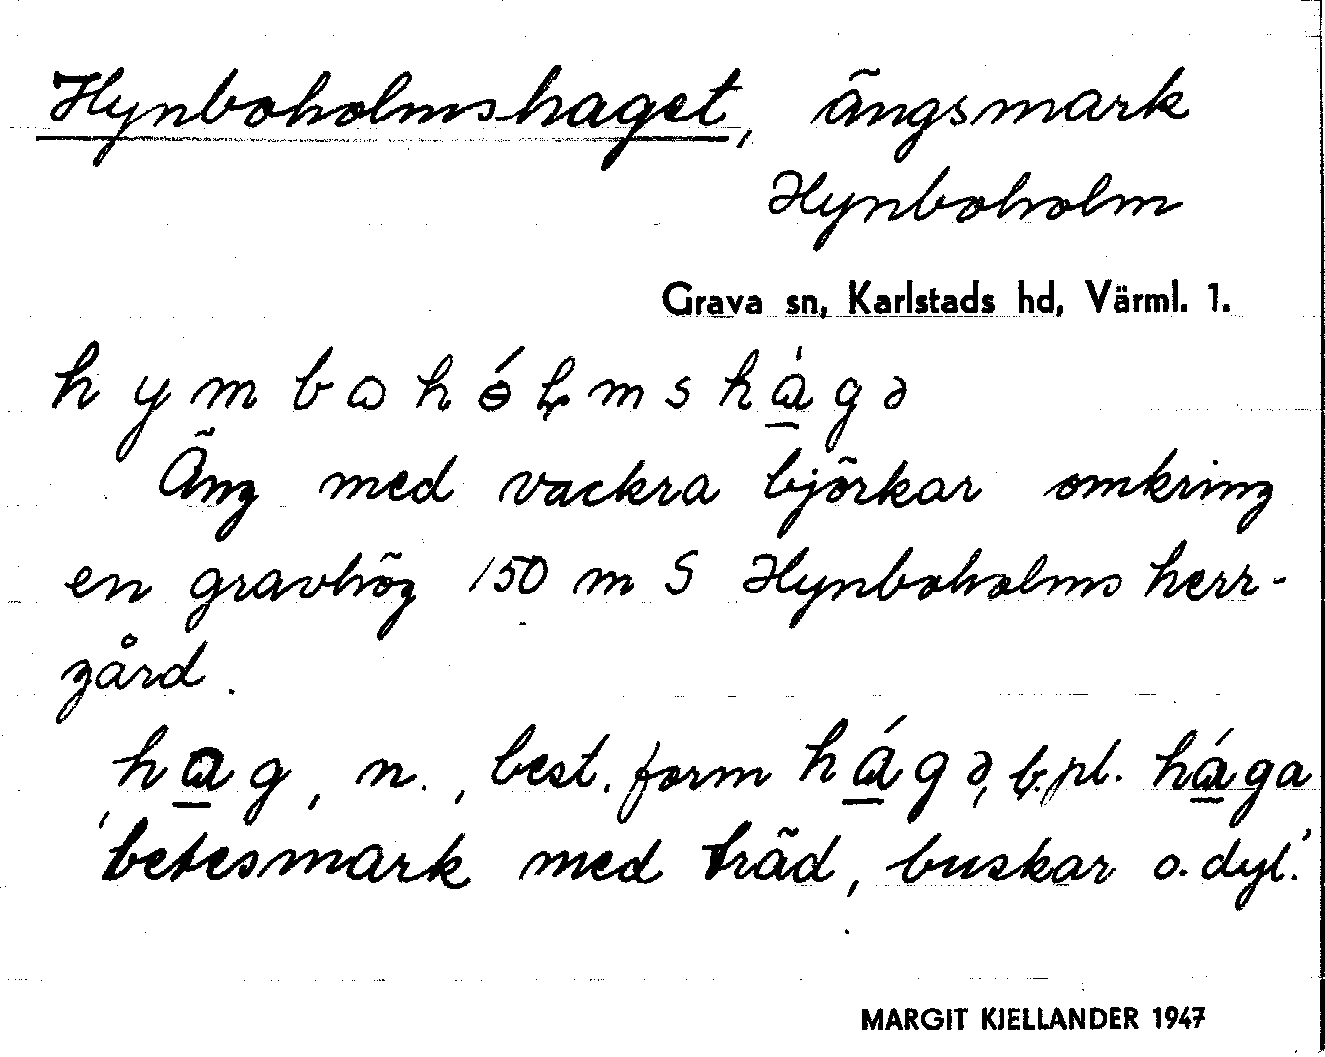 Hynboholmshaget, ängsmark
Hynboholm
Grava sn, Karlstads hd, Värml. 1.
hymbɷhó̵ɽmshàgə
Äng med vackra björkar omkring
en gravhög 150 m S Hynboholms herr-
gård.
hag, n., best. form hágə, b.pl. hága
'betesmark med träd, buskar o. dyl.'
MARGIT KJELLANDER 1947